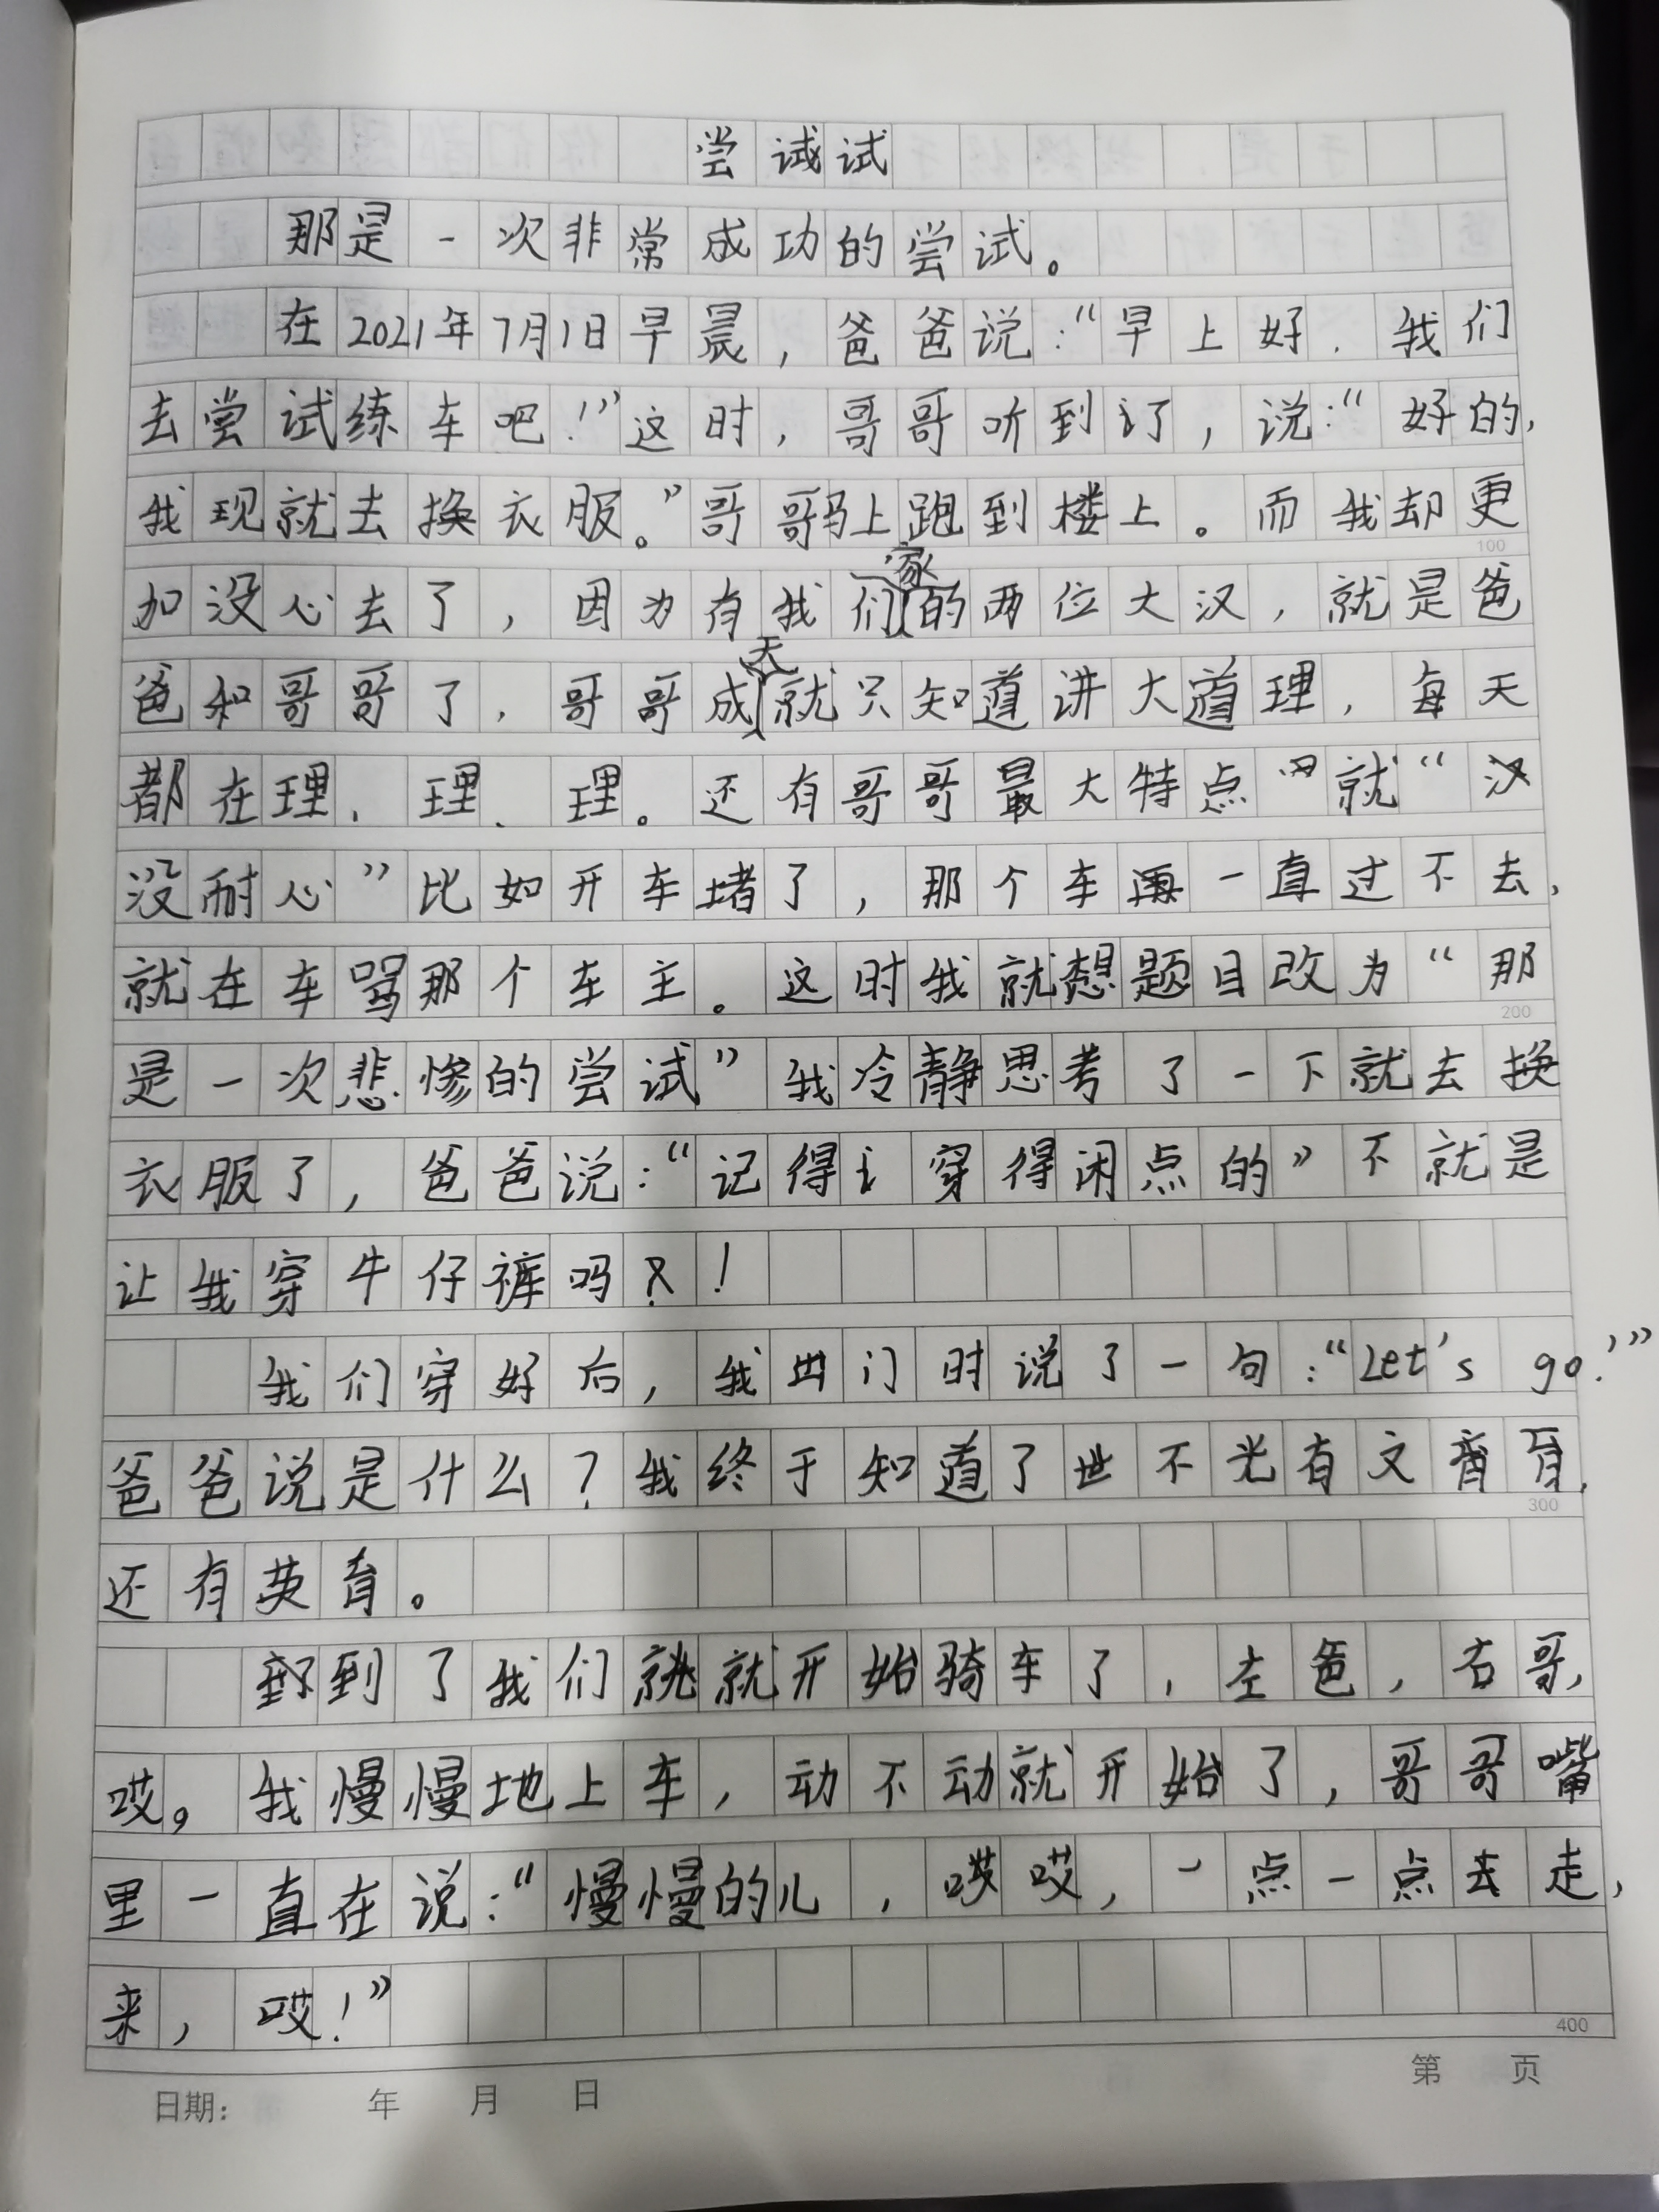 尝试试
那是一次非常成功的尝试。
在2021年7月1日早晨，爸爸说：“早上好，我们
去尝试练车吧！”这时，哥哥听到了，说：“好的，
我现就去换衣服。”哥哥马上跑到楼上。而我却更
加没心去了，因为有我们家的两位大汉，就是爸
爸和哥哥了，哥哥成天就只知道讲大道理，每天
都在理、理、理。还有哥哥最大特点就“
没耐心”比如开车堵了，那个车再一直过不去，
就在车骂那个车主。这时我就想题目改为“那
是一次悲惨的尝试”我冷静思考了一下就去换
衣服了，爸爸说：“记得穿得闲点的”不就是
让我穿牛仔裤吗？！
我们穿好后，我出门时说了一句：“Let's go！”
爸爸说是什么？我终于知道了世不光有文盲，
还有英盲。
到了我们就开始骑车了，左爸，右哥，
哎。我慢慢地上车，动不动就开始了，哥哥嘴
里一直在说：“慢慢的儿，哎哎，一点一点去走，
来，哎！”
100
200
300
400
日期： 年 月 日
第 页